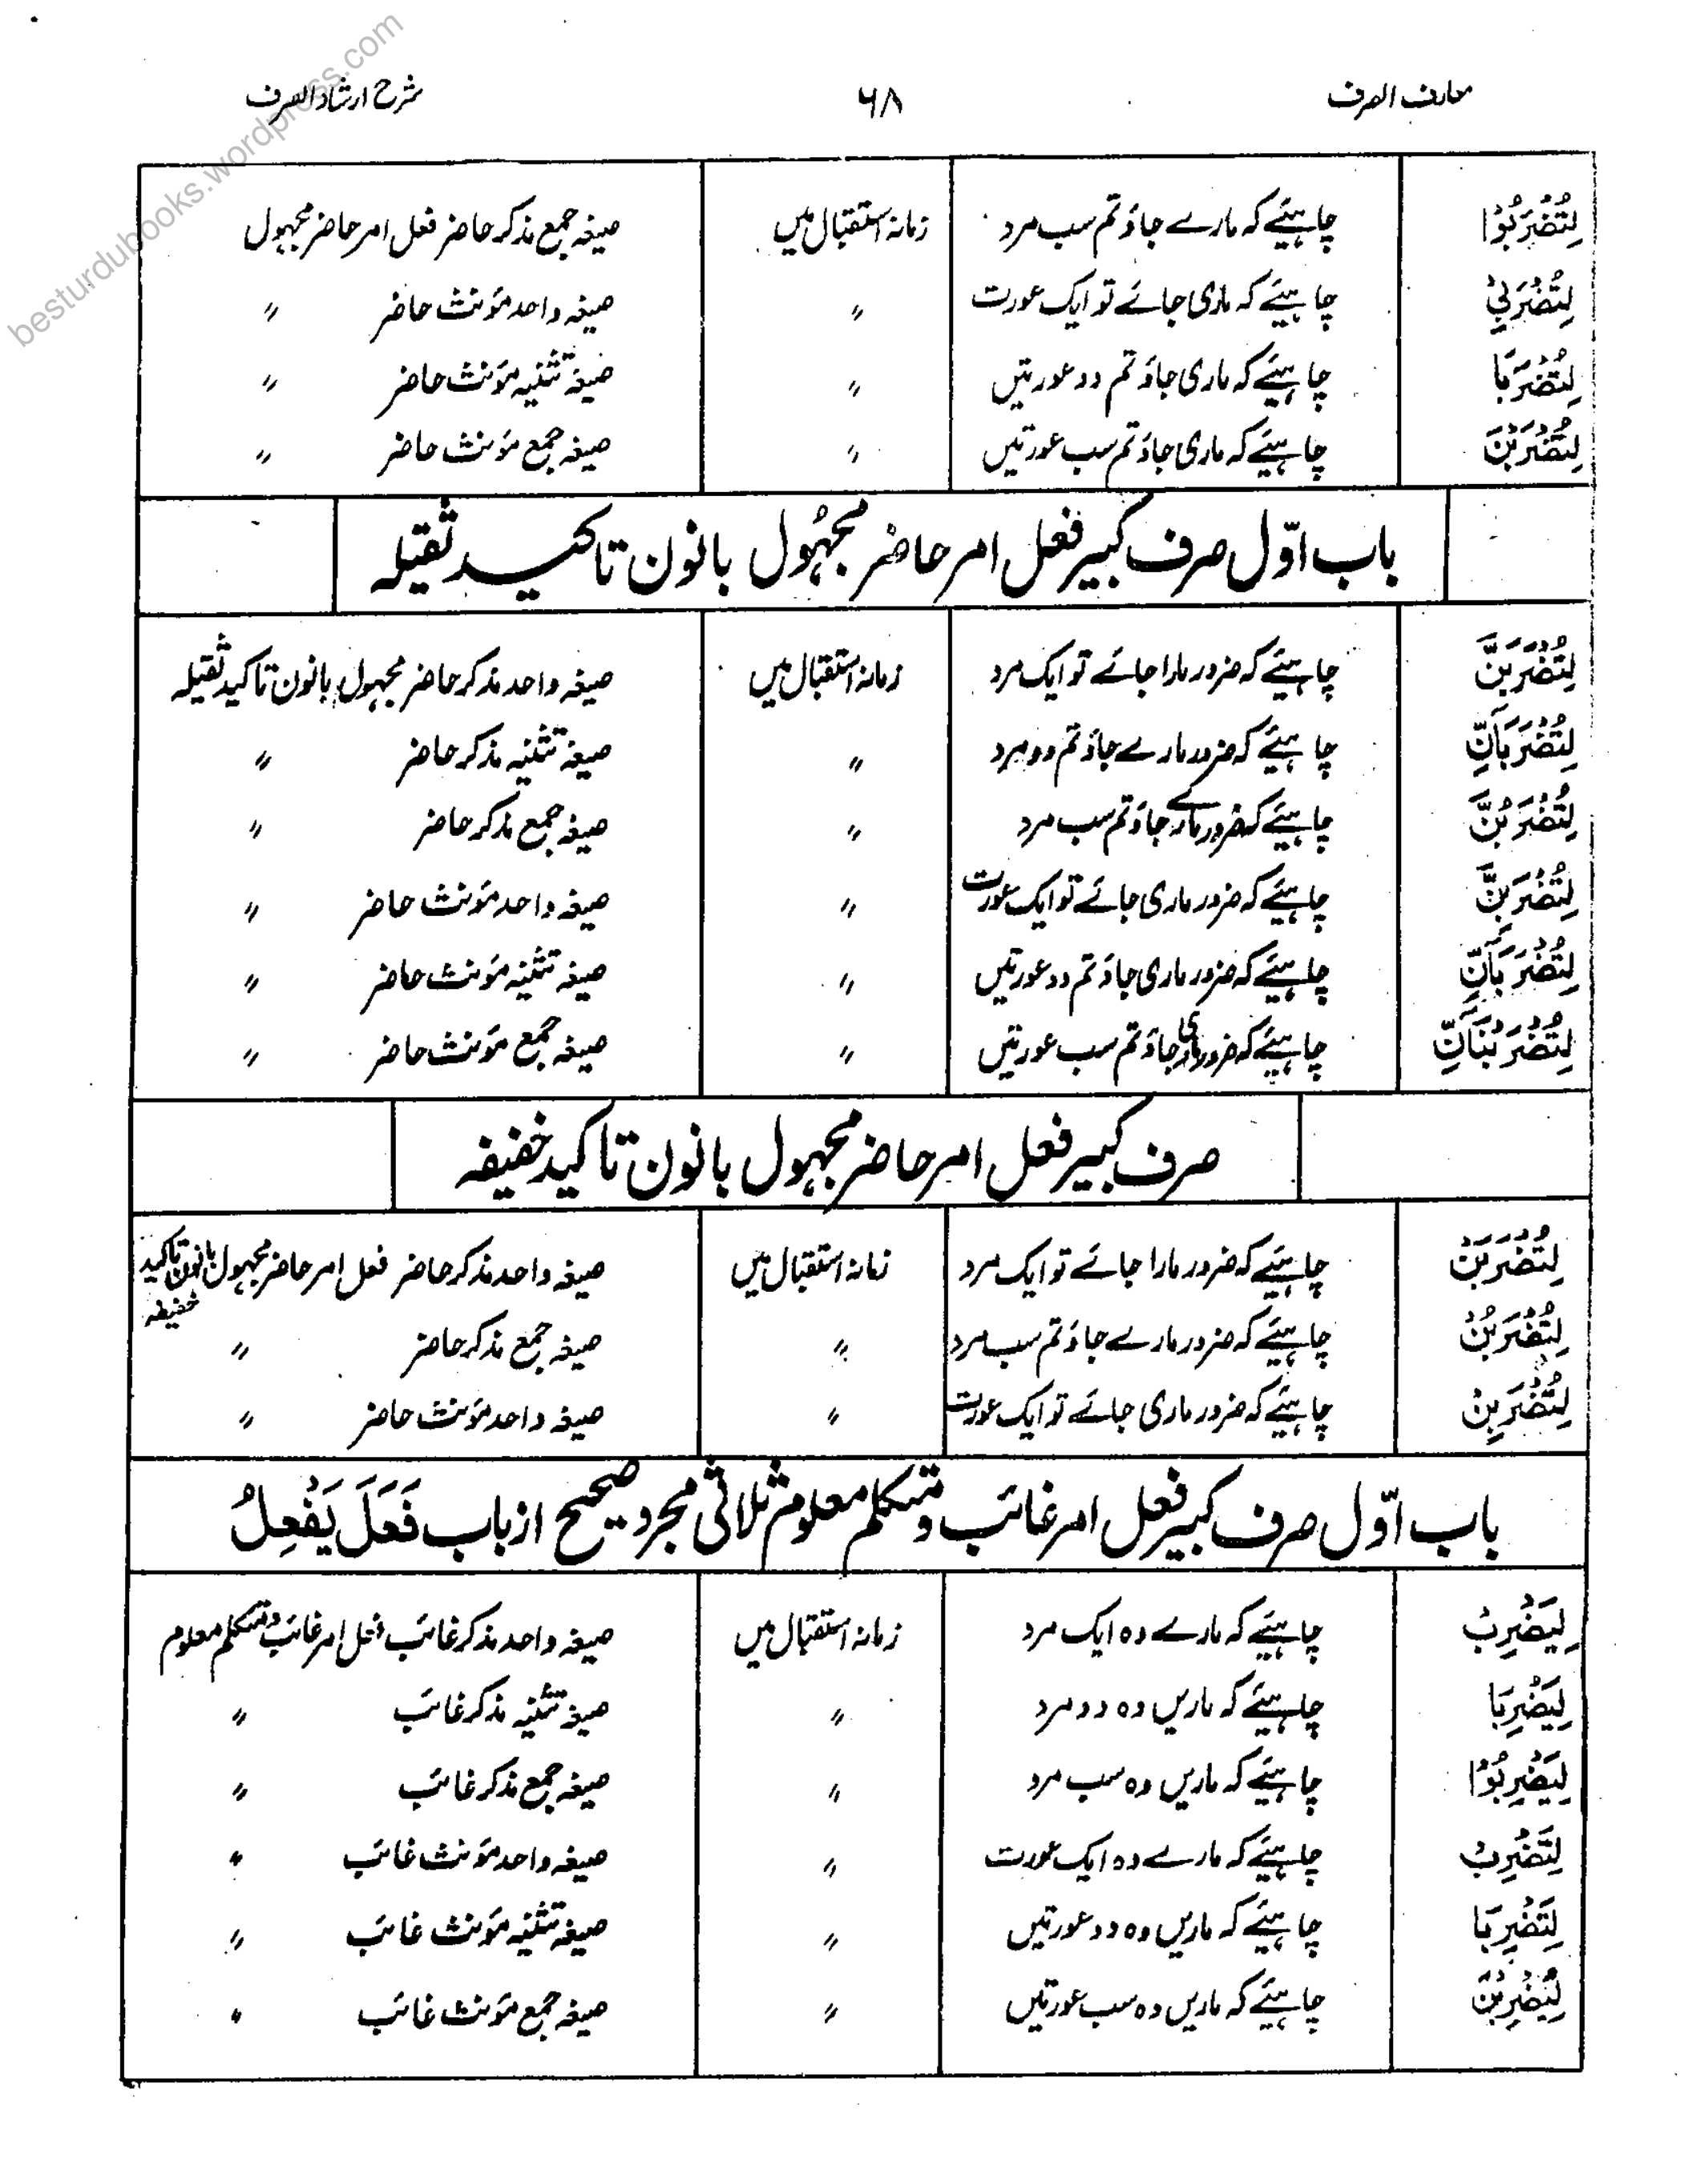 معارف الصرف ۶۸ شرح ارشاد الصرف
besturdubooks.wordpress.com
لِتُضْرَبُوْا چاہیئے کہ مارے جاؤ تم سب مرد زمانہ استقبال میں صیغہ جمع مذکر حاضر فعل امر حاضر مجہول
لِتُضْرَبِيْ چاہیئے کہ ماری جائے تو ایک عورت 〃 صیغہ واحد مؤنث حاضر 〃
لِتُضْرَبَا چاہیئے کہ ماری جاؤ تم دو عورتیں 〃 صیغہ تثنیہ مؤنث حاضر 〃
لِتُضْرَبْنَ چاہیئے کہ ماری جاؤ تم سب عورتیں 〃 صیغہ جمع مؤنث حاضر 〃
باب اوّل صرف کبیر فعل امر حاضر مجہُول بانون تاکید ثقیلہ
لِتُضْرَبَنَّ چاہیئے کہ ضرور مارا جائے تو ایک مرد زمانہ استقبال میں صیغہ واحد مذکر حاضر مجہول بانون تاکید ثقیلہ
لِتُضْرَبَانِّ چاہیئے کہ ضرور مارے جاؤ تم دو مرد 〃 صیغہ تثنیہ مذکر حاضر 〃
لِتُضْرَبُنَّ چاہیئے کہ ضرور مارے جاؤ تم سب مرد 〃 صیغہ جمع مذکر حاضر 〃
لِتُضْرَبِنَّ چاہیئے کہ ضرور ماری جائے تو ایک عورت 〃 صیغہ واحد مؤنث حاضر 〃
لِتُضْرَبَانِّ چاہیئے کہ ضرور ماری جاؤ تم دو عورتیں 〃 صیغہ تثنیہ مؤنث حاضر 〃
لِتُضْرَبْنَانِّ چاہیئے کہ ضرور ماری جاؤ تم سب عورتیں 〃 صیغہ جمع مؤنث حاضر 〃
صرف کبیر فعل امر حاضر مجہول بانون تاکید خفیفہ
لِتُضْرَبَنْ چاہیئے کہ ضرور مارا جائے تو ایک مرد زمانہ استقبال میں صیغہ واحد مذکر حاضر فعل امر حاضر مجہول بانون تاکید
خفیفہ
لِتُضْرَبُنْ چاہیئے کہ ضرور مارے جاؤ تم سب مرد 〃 صیغہ جمع مذکر حاضر 〃
لِتُضْرَبِنْ چاہیئے کہ ضرور ماری جائے تو ایک عورت 〃 صیغہ واحد مؤنث حاضر 〃
باب اوّل صرف کبیر فعل امر غائب و متکلم معلوم ثلاثی مجرد صحیح از باب فَعَلَ يَفْعِلُ
لِيَضْرِبْ چاہیئے کہ مارے وہ ایک مرد زمانہ استقبال میں صیغہ واحد مذکر غائب فعل امر غائب و متکلم معلوم
لِيَضْرِبَا چاہیئے کہ ماریں وہ دو مرد 〃 صیغہ تثنیہ مذکر غائب 〃
لِيَضْرِبُوْا چاہیئے کہ ماریں وہ سب مرد 〃 صیغہ جمع مذکر غائب 〃
لِتَضْرِبْ چاہیئے کہ مارے وہ ایک عورت 〃 صیغہ واحد مؤنث غائب 〃
لِتَضْرِبَا چاہیئے کہ ماریں وہ دو عورتیں 〃 صیغہ تثنیہ مؤنث غائب 〃
لِيَضْرِبْنَ چاہیئے کہ ماریں وہ سب عورتیں 〃 صیغہ جمع مؤنث غائب 〃